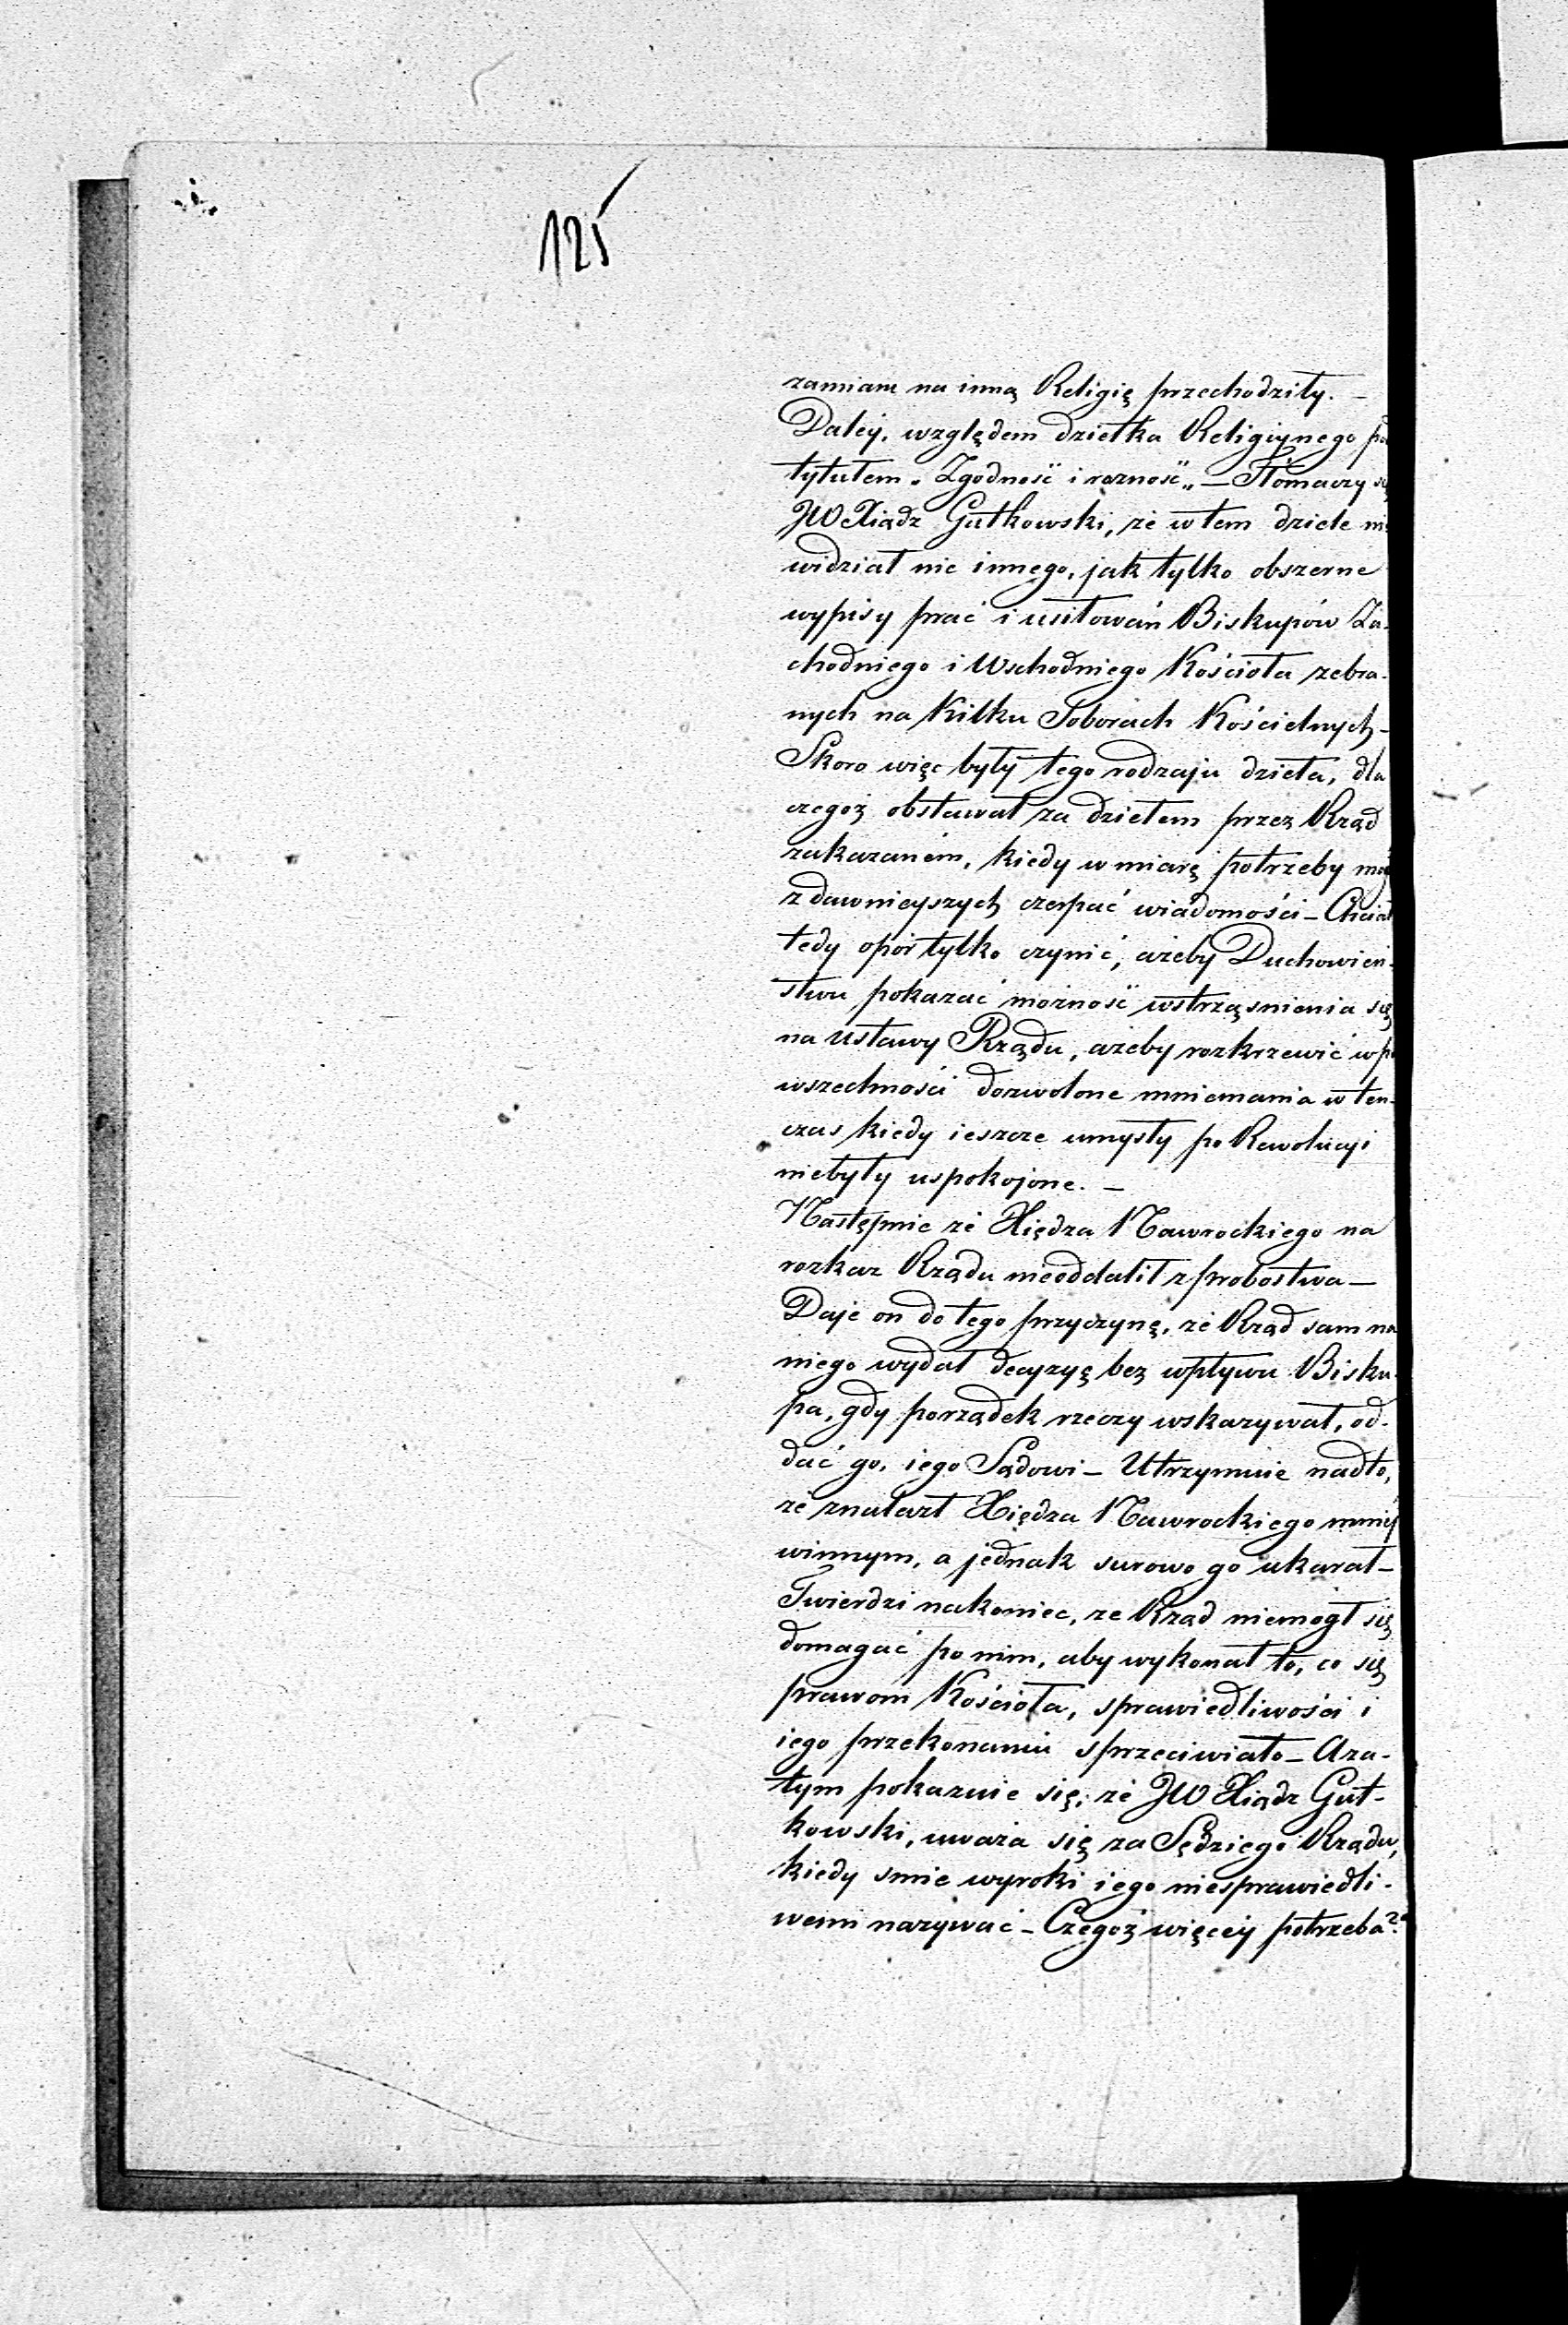 125
zamiane na inną Religię przechodziły. –
Daléy, względem dziełka Religiynego pod
tytułem „Zgodność i rozność„ – Tłomaczy się
JW Xiądz Gutkowski, że w tem dziele nie
widział nic innego, jak tylko obszerne
wypisy prac i usiłowań Biskupów Za-
chodniego i Wschodniego Kościoła zebra-
nych na Kilku Soborach Kościelnych –
Skoro więc były tego rodzaju dzieła, dla
czegoż obstawał za dziełem przez Rząd
zakazaném, kiedy w miarę potrzeby
z dawnieyszych czerpać wiadomości – Chciał
tedy opór tylko czynić, ażeby Duchowień-
stwu pokazać możność wstrząsnienia się
na Ustawy Rządu, ażeby rozkrzewić w po
wszechności dozwolone mniemania w ten-
czas kiedy ieszcze umysły po Rewolucyi
niebyły uspokojone. –
Następnie że Xiędza Nawrockiego na
rozkaz Rządu nieoddalił z probostwa –
Daje on do tego przyczynę, że Rząd sam na
niego wydał decyzyę bez wpływu Bisku-
pa, gdy porządek rzeczy wskazywał, od-
dać go, iego Sądowi – Utrzymuie nadto,
że znalazł Xiędza Nawrockiego mniéy
winnym, a jednak surowo go ukarał –
Twierdzi nakoniec, ze Rząd niemogł się
domagać po nim, aby wykonał to, co się
prawom Kościoła, sprawiedliwości i
iego przekonaniu sprzeciwiało – Aza-
tym pokazuie się, że JW Xiądz Gut-
kowski, uważa się za Sędziego Rządu,
kiedy smie wyroki iego niesprawiedli-
wemi nazywać – Czegoż więcéy potrzeba?